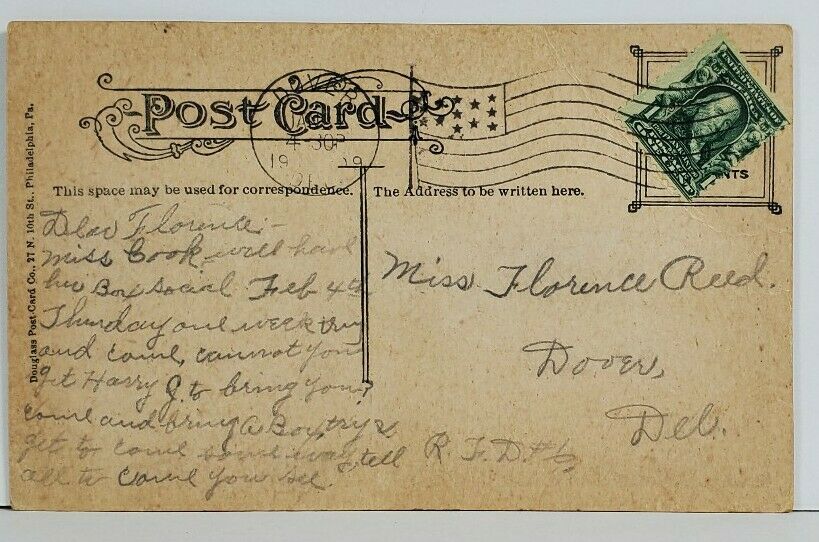 Post Card
DOVER
4-30P
19 09
This space may be used for correspondence.
The Address to be written here.
Douglass Post Card Co., 27 N. 10th St., Philadelphia, Pa.
NTS
Dear Florence -
Miss Cook will have
her Box social Feb 4th
Thursday one week try
and come, cannot you
get Harry J. to bring you,
come and bring a Box, try &
get to come some way, tell
all to come you see.
Miss Florence Reed.
Dover,
Del.
R. F. D. #6